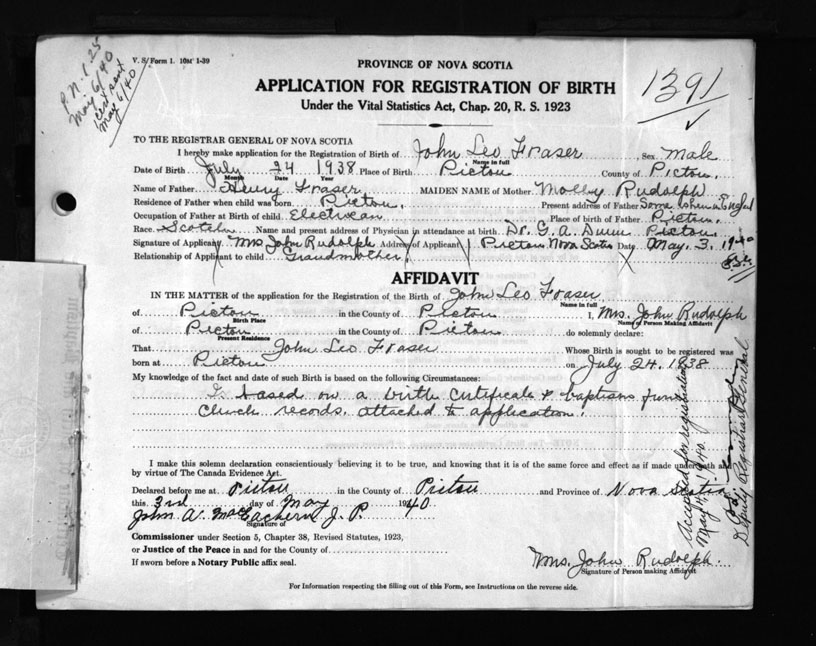 V. S. Form 1. 10M 1-39
P.N. 1.25
May 6/40
Cert sent
May 6/40
1391
PROVINCE OF NOVA SCOTIA
APPLICATION FOR REGISTRATION OF BIRTH
Under the Vital Statistics Act, Chap. 20, R. S. 1923
TO THE REGISTRAR GENERAL OF NOVA SCOTIA
I hereby make application for the Registration of Birth of John Leo Fraser Sex Male
Name in full
Date of Birth July 24 1938 Place of Birth Pictou County of Pictou
Month Date Year
Name of Father Henry Fraser MAIDEN NAME of Mother Molly Rudolph
Residence of Father when child was born Pictou Present address of Father Some where in England
Occupation of Father at Birth of child Electrican Place of birth of Father Pictou
Race Scotch Name and present address of Physician in attendance at birth Dr. G. A. Dunn Pictou
Signature of Applicant Mrs John Rudolph Address of Applicant Pictou Nova Scotia Date May 3 1940
Relationship of Applicant to child Grandmother
AFFIDAVIT
IN THE MATTER of the application for the Registration of the Birth of John Leo Fraser
Name in full
of Pictou in the County of Pictou I, Mrs. John Rudolph
Birth Place Name of Person Making Affidavit
of Pictou in the County of Pictou do solemnly declare:
Present Residence
That John Leo Fraser Whose Birth is sought to be registered was
born at Pictou on July 24, 1938
My knowledge of the fact and date of such Birth is based on the following Circumstances:
Is based on a birth certificate & baptism from
Church records attached to application.
I make this solemn declaration conscientiously believing it to be true, and knowing that it is of the same force and effect as if made under oath and
by virtue of The Canada Evidence Act.
Declared before me at Pictou in the County of Pictou and Province of Nova Scotia
this 3rd day of May 1940
John A. MacEachern J. P.
Signature of
Commissioner under Section 5, Chapter 38, Revised Statutes, 1923,
or Justice of the Peace in and for the County of
If sworn before a Notary Public affix seal.
Mrs. John Rudolph
Signature of Person making Affidavit
For Information respecting the filling out of this Form, see Instructions on the reverse side.
Accepted for registration
Deputy Registrar General